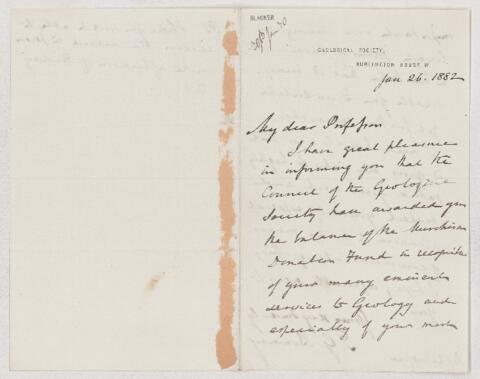 BLACKER
GEOLOGICAL SOCIETY,
BURLINGTON HOUSE, W.
Jan 26. 1882
My dear Professor
I have great pleasure
in informing you that the
Council of the Geological
Society have awarded you
the balance of the Murchison
Donation Fund in recognition
of your many eminent
services to Geology and
especially of your